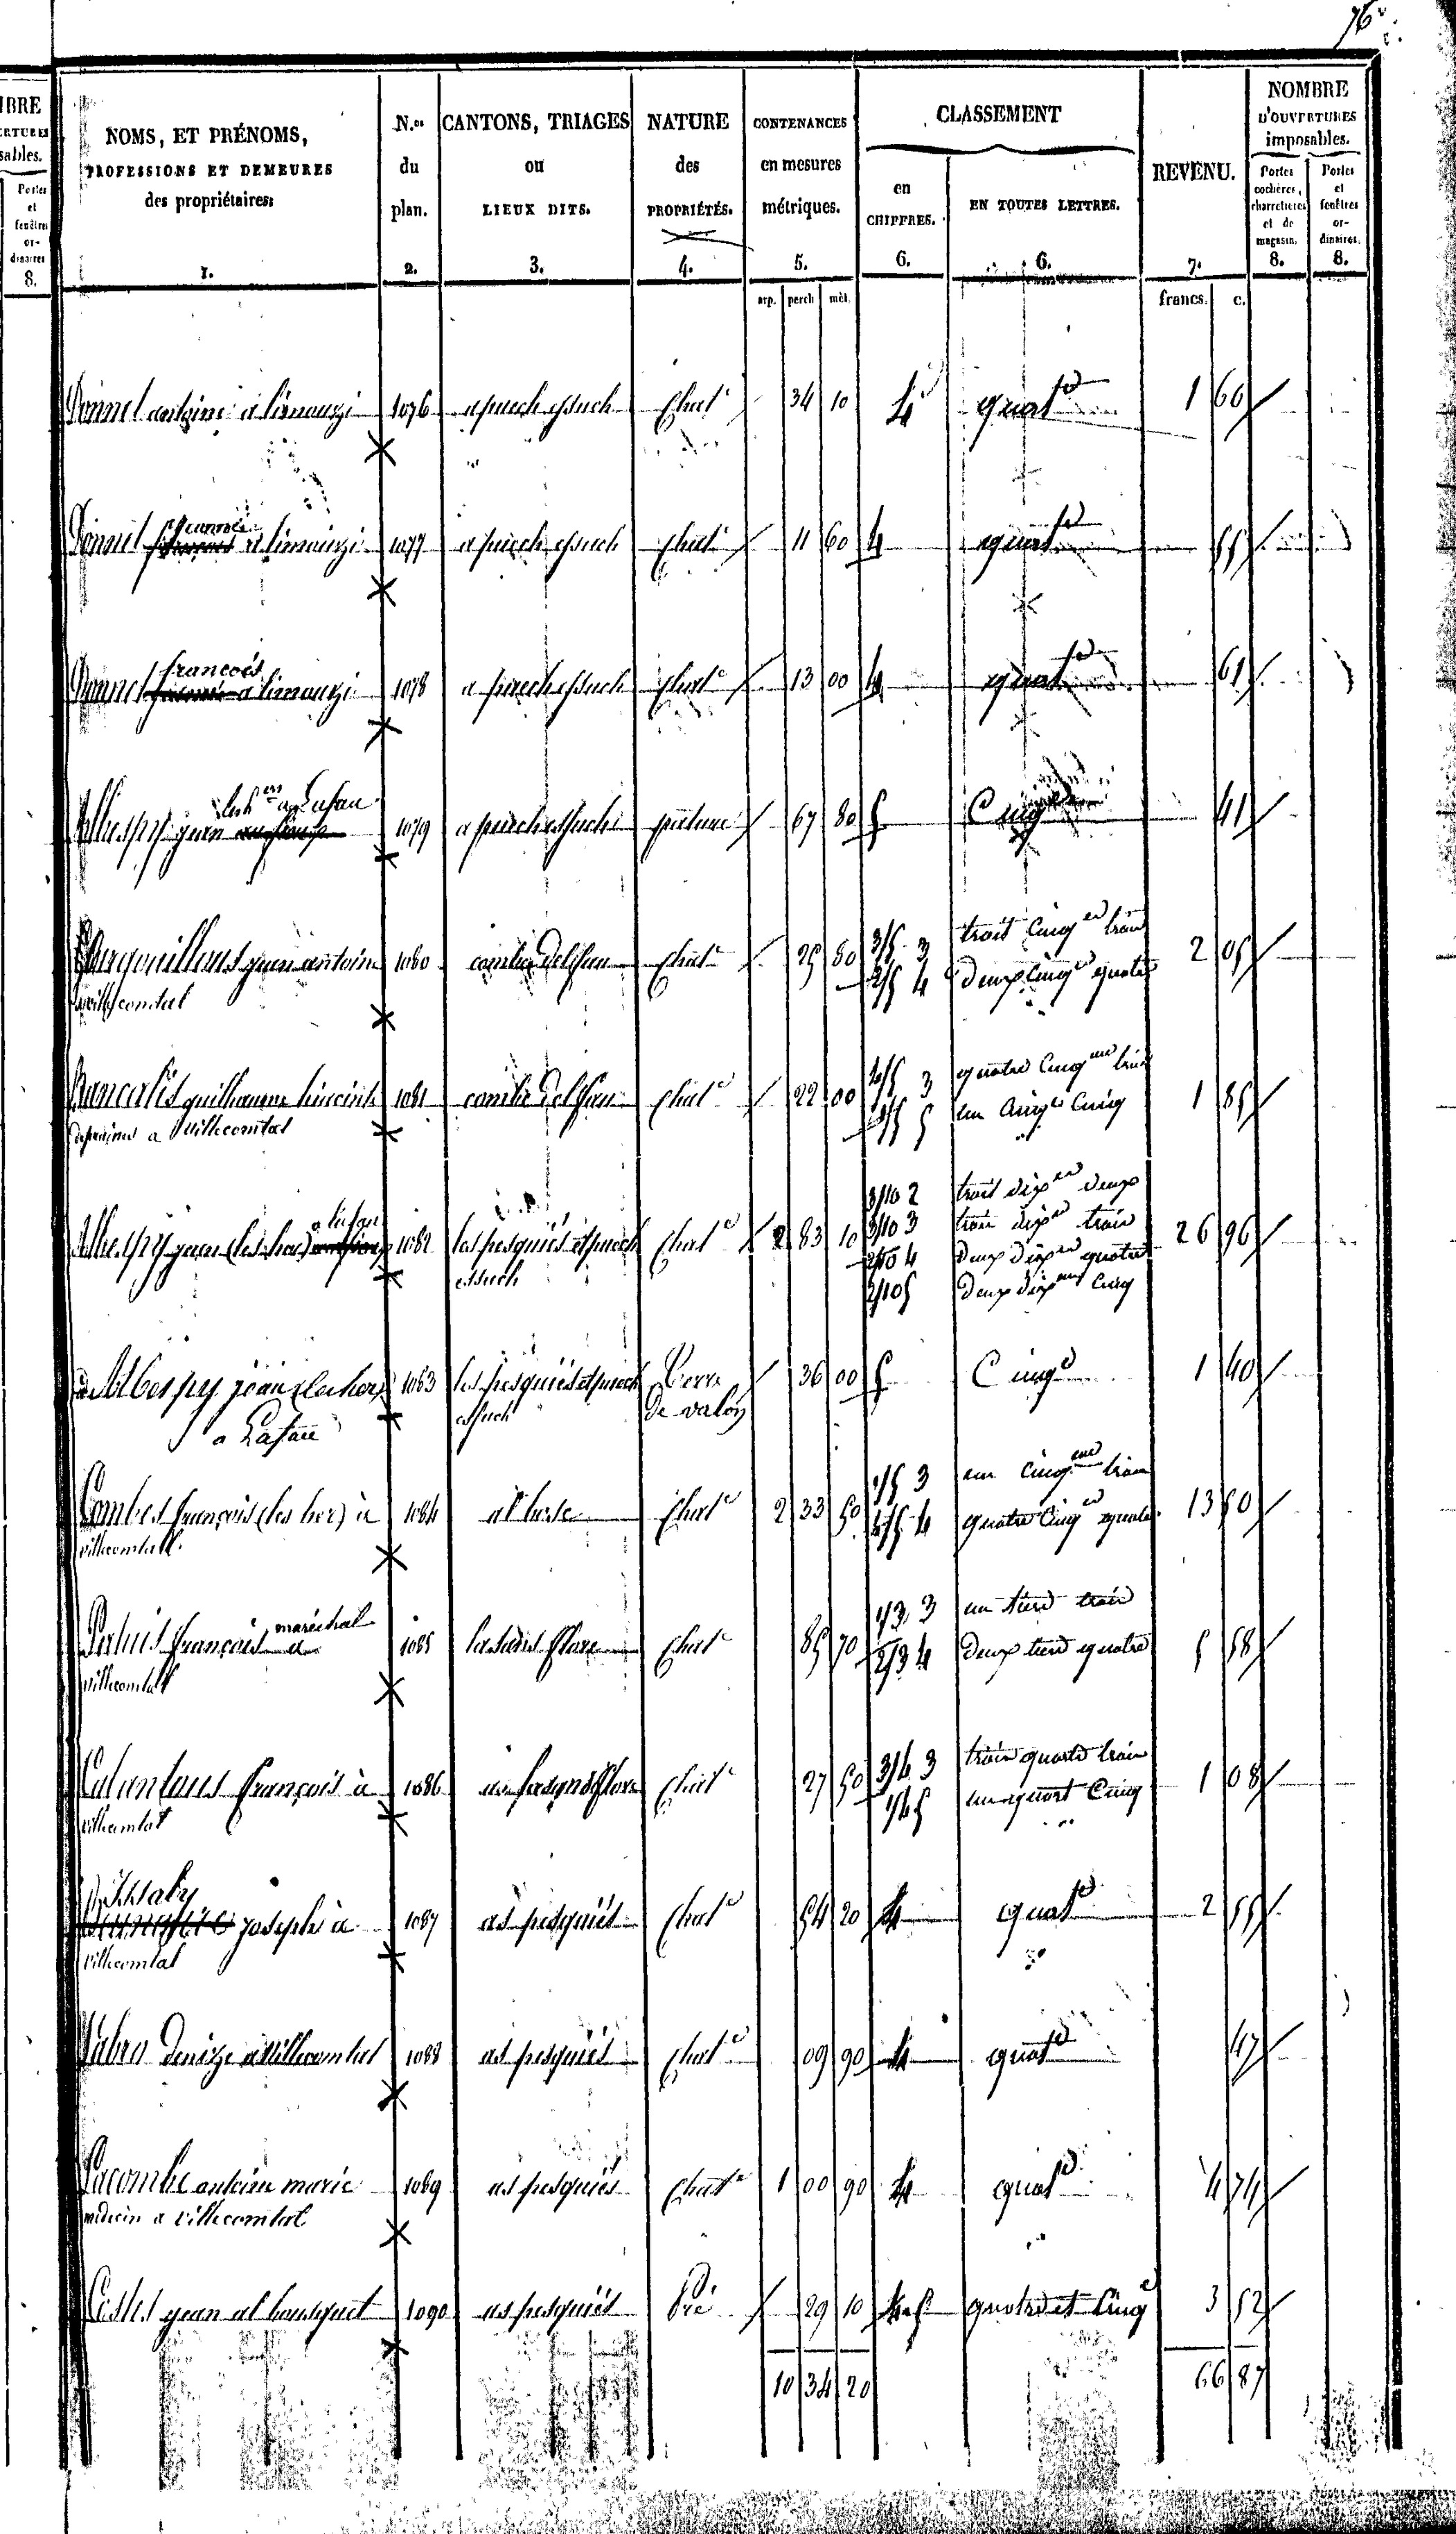 76
NOMS, ET PRÉNOMS,
PROFESSIONS ET DEMEURES
des propriétaires
1.
N.os
du
plan.
2.
CANTONS, TRIAGES
ou
LIEUX DITS.
3.
NATURE
des
PROPRIÉTÉS.
4.
CONTENANCES
en mesures
métriques.
5.
arp. perch mèt.
CLASSEMENT
en
CHIFFRES.
6.
EN TOUTES LETTRES.
6.
REVENU.
7.
francs. c.
NOMBRE
D'OUVERTURES
imposables.
Portes
cochères,
charretières
et de
magasin.
8.
Portes
et
fenêtres
or-
dinaires.
8.
Donnel antoine a limouzi 1076 a puech essuch Chat 34 10 4 quat 1 60
Jeanne
Donnel a limouzi 1077 a puech essuch Chat 11 60 4 quat 55
francois
Donnel a limouzi 1078 a puech essuch Chat 13 00 4 quat 61
les her a Lafau
Albespy jean 1079 a puech essuch pature 67 80 5 Cinq 41
jean antoine 1080 combe del fau Chat 25 80 3/5 3 trois Cinq trois 2 05
villecomtal 2/5 4 deux Cinq quatre
Bancalis guilhaume 1081 combe del fau Chat 22 00 4/5 3 quatre Cinq trois 1 85
a villecomtal 1/5 5 un Cinq Cinq
3/10 2 trois dix deux
a lafau
Albespy jean (les her) 1082 les pesquiés et puech Chat 2 83 10 3/10 3 trois dix trois 26 96
essuch 2/10 4 deux dix quatre
2/10 5 deux dix Cinq
Albespy jean (les her) 1083 les pesquiés et puech Terre 36 00 5 Cinq 1 40
a Lafau essuch de valon
Combes françois (les her) à 1084 Chat 2 33 50 1/5 3 un Cinq trois 13 50
villecomtal 4/5 4 quatre Cinq quatre
maréchal
françois a 1085 Chat 85 70 1/3 3 un tiers trois 5 58
villecomtal 2/3 4 deux tiers quatre
françois à 1086 Chat 27 50 3/4 3 trois quarts trois 1 08
villecomtal 1/4 5 un quart Cinq
joseph à 1087 as pesquiés Chat 54 20 4 quat 2 55
villecomtal
Fabre Denize a villecomtal 1088 as pesquiés Chat 09 90 4 quat 47
Lacombe antoine marie 1089 as pesquiés Chat 1 00 90 4 quat 4 74
médecin a villecomtal
Costes jean al bousquet 1090 as pesquiés Pré 29 10 4 5 quatre et Cinq 3 52
10 34 20 66 87